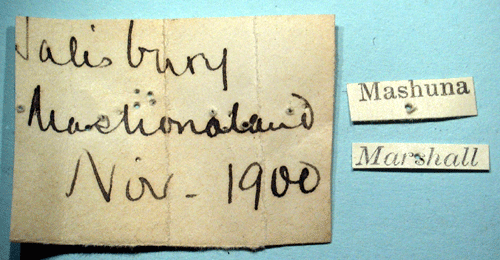 Salisbury
Mashonaland
Nov - 1900
Mashuna
Marshall